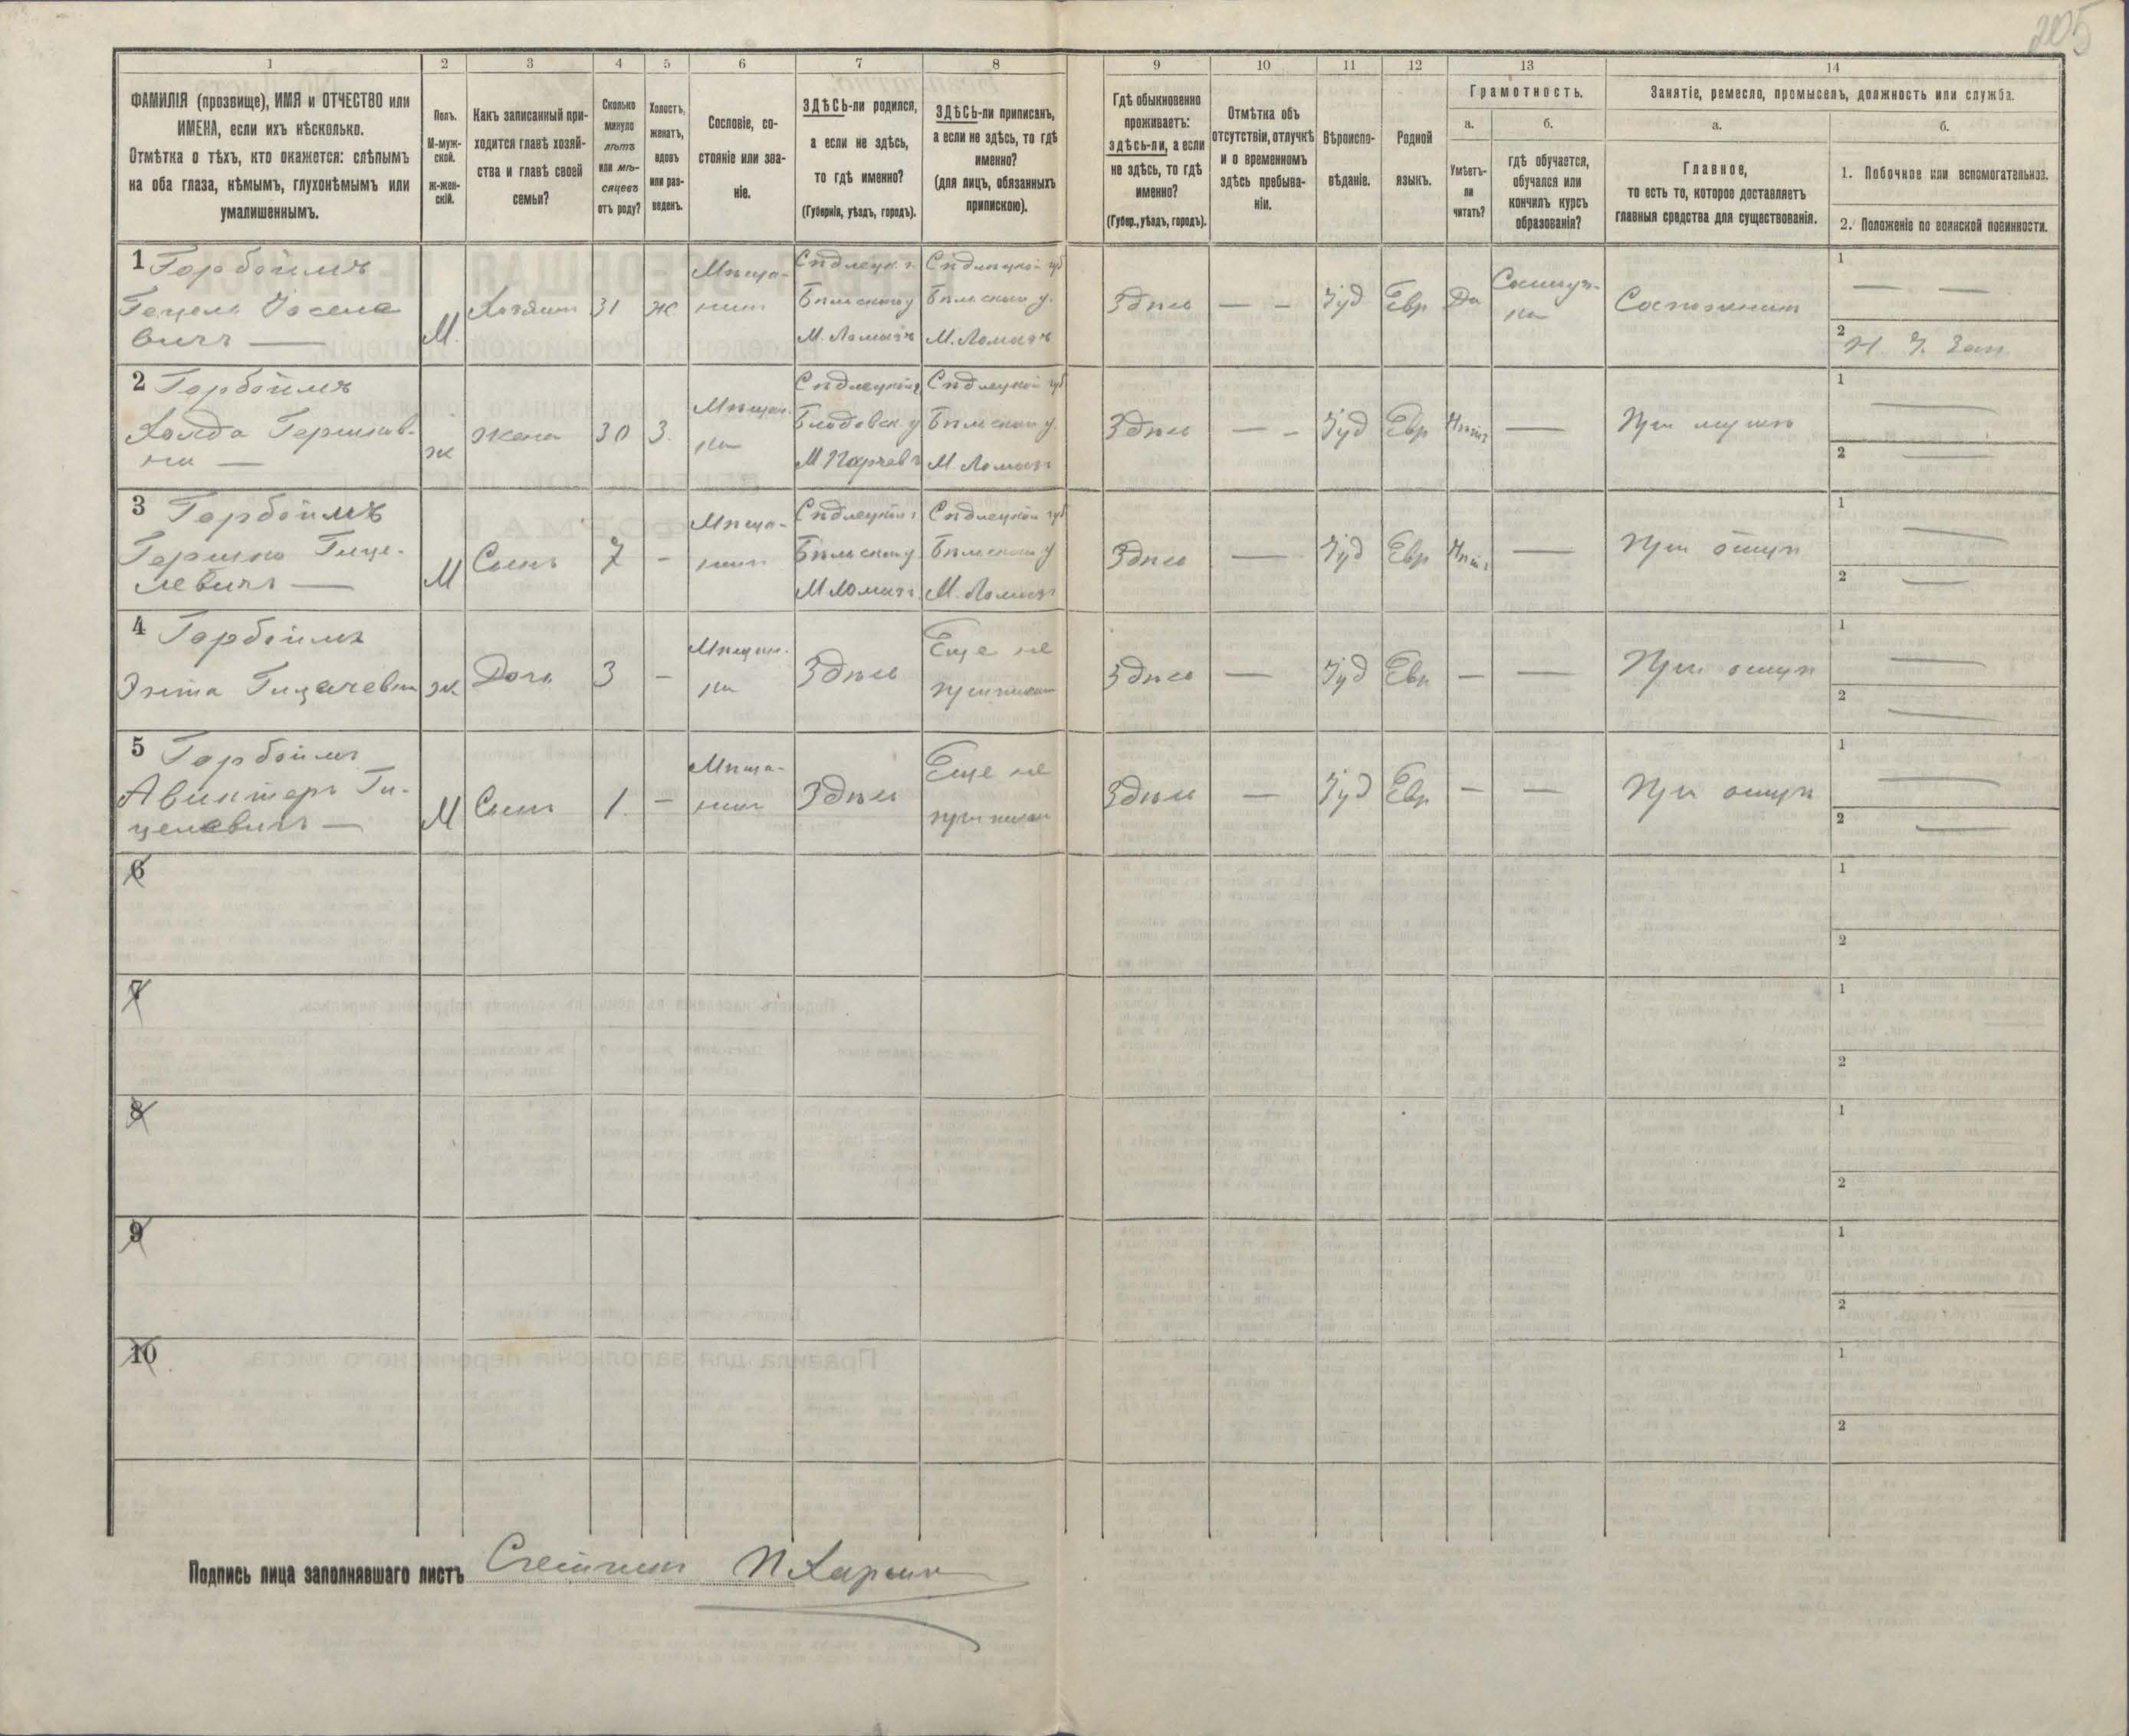 205
1
2
3
4
5
6
7
8
9
10
11
12
13
14
ФАМИЛІЯ (прозвище), ИМЯ и ОТЧЕСТВО или
ИМЕНА, если ихъ нѣсколько.
Отмѣтка о тѣхъ, кто окажется: слѣпымъ
на оба глаза, нѣмымъ, глухонѣмымъ или
умалишеннымъ.
Полъ.
М-муж-
ской.
Ж-жен-
скій.
Какъ записанный при-
ходится главѣ хозяй-
ства и главѣ своей
семьи?
Сколько
минуло
лѣтъ
или мѣ-
сяцевъ
отъ роду?
Холостъ,
женатъ,
вдовъ
или раз-
веденъ.
Сословіе, со-
стояніе или зва-
ніе.
ЗДѢСЬ-ли родился,
а если не здѣсь,
то гдѣ именно?
(Губернія, уѣздъ, городъ).
ЗДѢСЬ-ли приписанъ,
а если не здѣсь, то гдѣ
именно?
(для лицъ, обязанныхъ
припискою).
Гдѣ обыкновенно
проживаетъ:
здѣсь-ли, а если
не здѣсь, то гдѣ
именно?
(Губер., уѣздъ, городъ).
Отмѣтка объ
отсутствіи, отлучкѣ
и о временномъ
здѣсь пребыва-
ніи.
Вѣроиспо-
вѣданіе.
Родной
языкъ.
Грамотность.
а.
Умѣетъ-
ли
читать?
б.
гдѣ обучается,
обучался или
кончилъ курсъ
образованія?
Занятіе, ремесло, промыселъ, должность или служба.
а.
Главное,
то есть то, которое доставляетъ
главныя средства для существованія.
б.
1. Побочное или вспомогательное.
2. Положеніе по воинской повинности.
1 Горбоймъ
Гецель
вичъ —
М.
Хозяинъ
31
ж
Мѣща-
нинъ
Сѣдлецк. г.
Бѣльскаго у
М. Ломазъ
Сѣдлецкой губ
Бѣльскаго у.
М. Ломазъ
Здѣсь
— —
Іуд
Евр
Да
1
— —
2
2 Горбоймъ
Гершков-
на —
ж
Жена
30
З.
Мѣщан.
ка
Сѣдлецкой г
М Парчевъ
Сѣдлецкой губ
Бѣльскаго у.
М. Ломазъ
Здѣсь
— —
Іуд
Евр
Нѣтъ
—
При мужѣ
1
—
2
—
3 Горбоймъ
Гершко Гице-
левичъ —
М
Сынъ
7
—
Мѣща-
нинъ
Сѣдлецкой г
Бѣльскаго у
М Ломазъ
Сѣдлецкой губ
Бѣльскаго у
М. Ломазъ
Здѣсь
—
Іуд
Евр
Нѣтъ
—
При отцѣ
1
—
2
—
4 Горбоймъ
ж
Дочь
3
—
Мѣщан.
ка
Здѣсь
Еще не
приписана
Здѣсь
—
Іуд
Евр
—
—
При отцѣ
1
—
2
—
5 Горбоймъ
Ги-
целевичъ —
М
Сынъ
1
—
Мѣща-
нинъ
Здѣсь
Еще не
приписан
Здѣсь
—
Іуд
Евр
—
—
При отцѣ
1
—
2
—
6
1
2
7
1
2
8
1
2
9
1
2
10
1
2
Подпись лица заполнявшаго листъ Счетчикъ